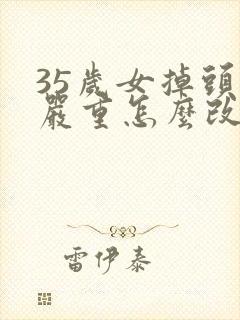 35歲女掉頭
嚴重怎麼改
雷伊泰